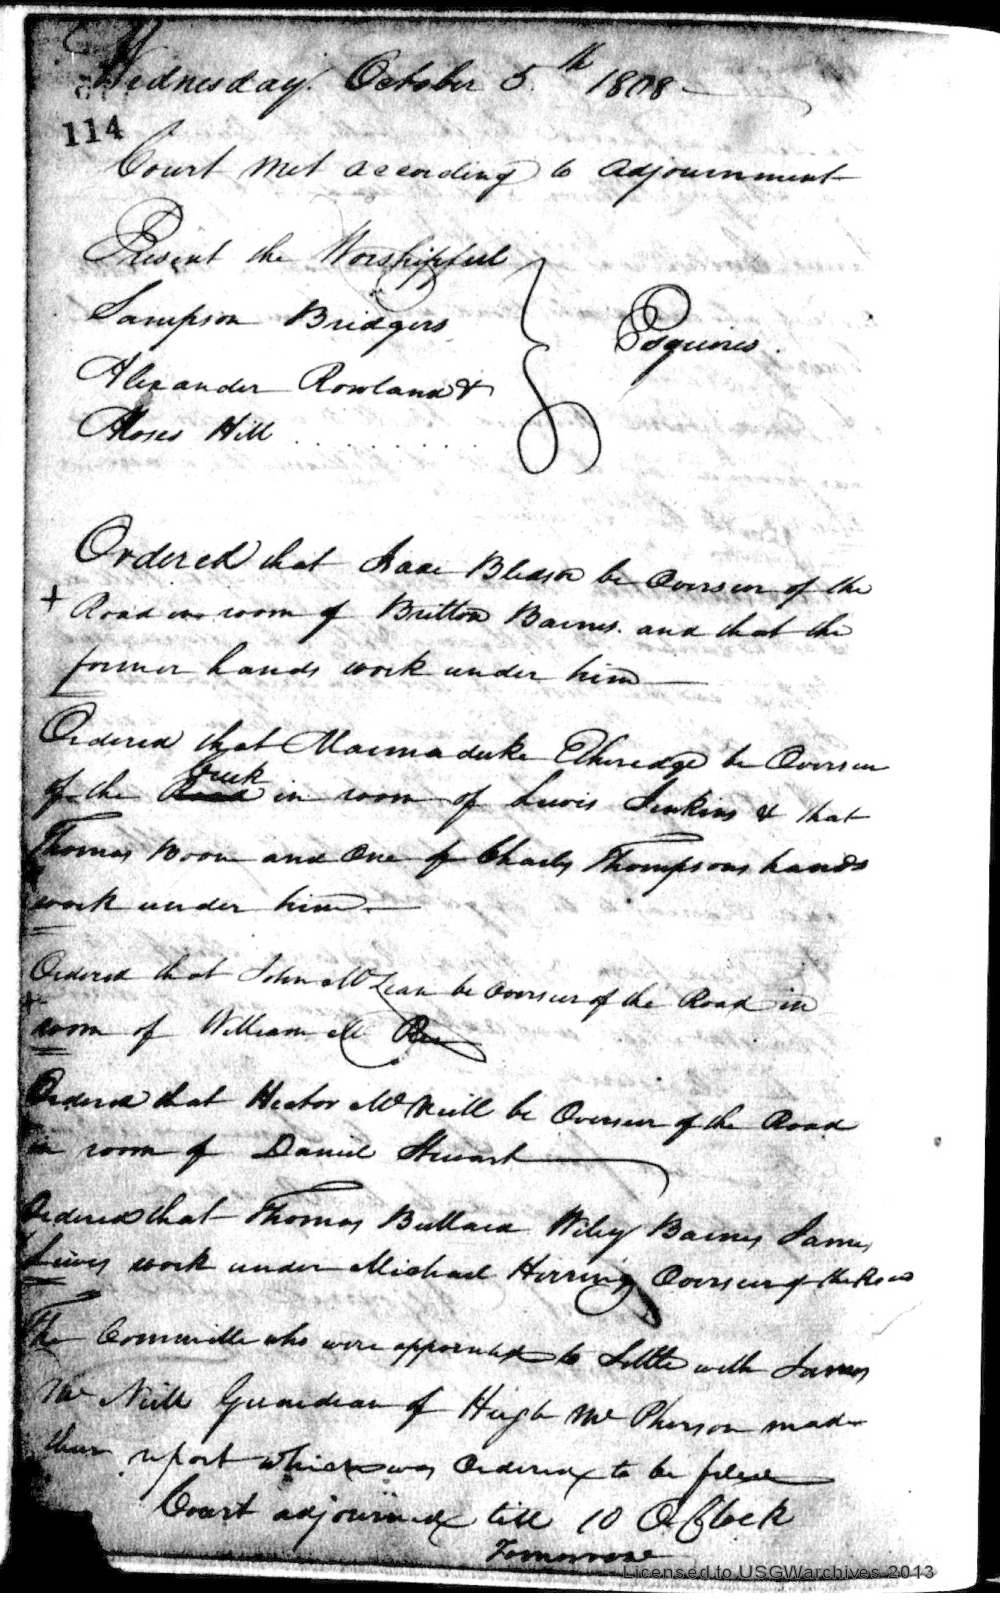 Wednesday October 5th 1808
114
Court met according to adjournment
Present the Worshipful
Sampson Bridgers
Alexander Rowland &
Moses Hill
Esquires.
Ordered that Isaac Bledsoe be Overseer of the
+ Road in room of Britton Barnes. and that the
former hands work under him
Ordered that Marmaduke Etheredge be Overseer
Creek
of the Road in room of Lewis Jenkins & that
Thomas Boon and One of Charles Thompsons hands
work under him
Ordered that John McLean be Overseer of the Road in
room of William Mc
Ordered that Hector McNeill be Overseer of the Road
in room of Daniel Stewart
Ordered that Thomas Bullard Wiley Barnes James
work under Michael Herring Overseer of the Road
The Committee who were appointed to Settle with James
McNeill Guardian of Hugh McPherson made
their report which was Ordered to be filed
Court adjourned till 10 OClock
Tomorrow
Licensed to USGWarchives 2013